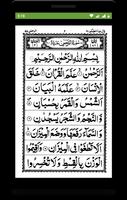 بِسْمِ اللهِ الرَّحْمٰنِ الرَّحِيْمِ
اَلرَّحْمٰنُ عَلَّمَ الْقُرْاٰنَ خَلَقَ
الْاِنْسَانَ عَلَّمَهُ الْبَيَانَ اَلشَّمْسُ
وَالْقَمَرُ بِحُسْبَانٍ وَّالنَّجْمُ وَ
الشَّجَرُ يَسْجُدَانِ وَالسَّمَآءَ
رَفَعَهَا وَوَضَعَ الْمِيْزَانَ اَلَّا
تَطْغَوْا فِي الْمِيْزَانِ وَاَقِيْمُوا
الْوَزْنَ بِالْقِسْطِ وَلَا تُخْسِرُوا